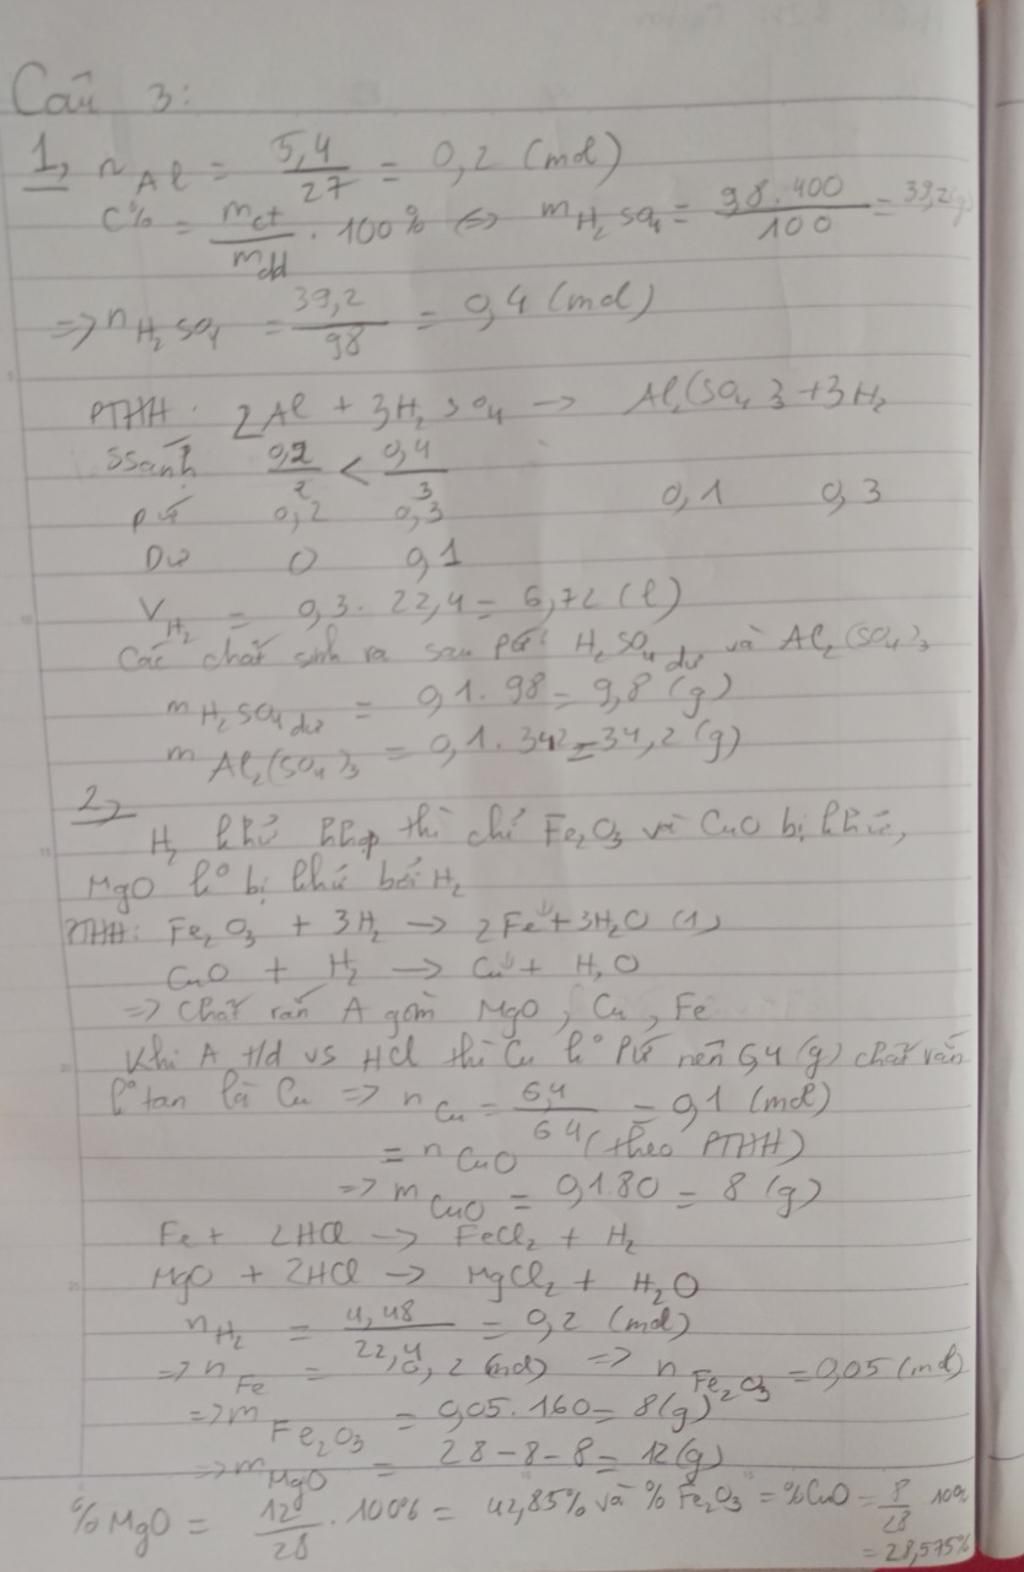 Câu 3:
1, n Al = 5,4/27 = 0,2 (mol)
C% = mct/mdd . 100% <=> m H2SO4 = 98.400/100 = 39,2(g)
=> n H2SO4 = 39,2/98 = 0,4 (mol)
PTHH: 2Al + 3H2SO4 -> Al2(SO4)3 + 3H2
Ssánh 0,2/2 < 0,4/3
pứ 0,2 0,3 0,1 0,3
Dư 0 0,1
V H2 = 0,3. 22,4 = 6,72 (l)
Các chất sinh ra sau pứ: H2SO4 dư và Al2(SO4)3
m H2SO4 dư = 0,1.98 = 9,8 (g)
m Al2(SO4)3 = 0,1.342 = 34,2 (g)
2,
H2 khử hhợp thì chỉ Fe2O3 và CuO bị khử,
MgO ko bị khử bởi H2
PTHH: Fe2O3 + 3H2 -> 2Fe↓ + 3H2O (1)
CuO + H2 -> Cu↓ + H2O
=> Chất rắn A gồm MgO, Cu, Fe
Khi A t/d vs HCl thì Cu ko pứ nên 6,4 (g) chất rắn
ko tan là Cu => n Cu = 6,4/64 = 0,1 (mol)
= n CuO (theo PTHH)
=> m CuO = 0,1.80 = 8 (g)
Fe + 2HCl -> FeCl2 + H2
MgO + 2HCl -> MgCl2 + H2O
n H2 = 4,48/22,4 = 0,2 (mol)
=> n Fe = 0,2 (mol) => n Fe2O3 = 0,05 (mol)
=> m Fe2O3 = 0,05.160 = 8(g)
=> m MgO = 28 - 8 - 8 = 12 (g)
% MgO = 12/28 . 100% = 42,85% và % Fe2O3 = %CuO = 8/28 100%
= 28,575%